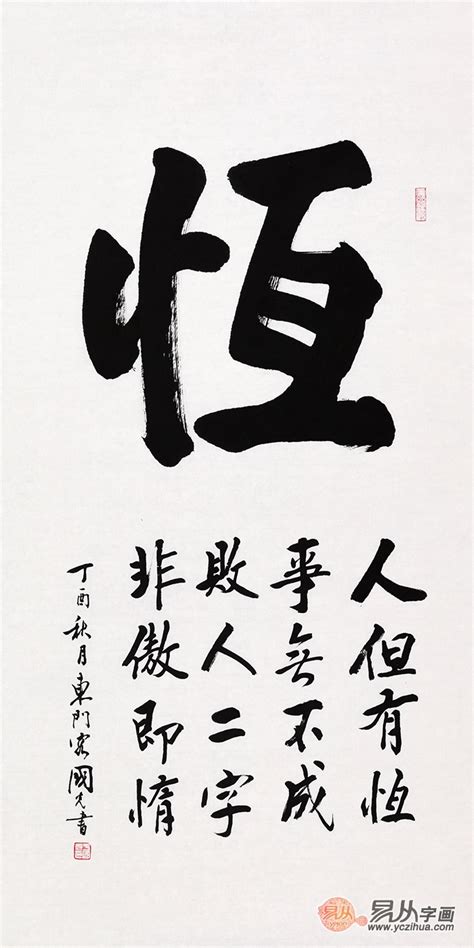 恆
人但有恆
事無不成
敗人二字
非傲即惰
丁酉秋月東門客國先書
易从字画
www.yczihua.com